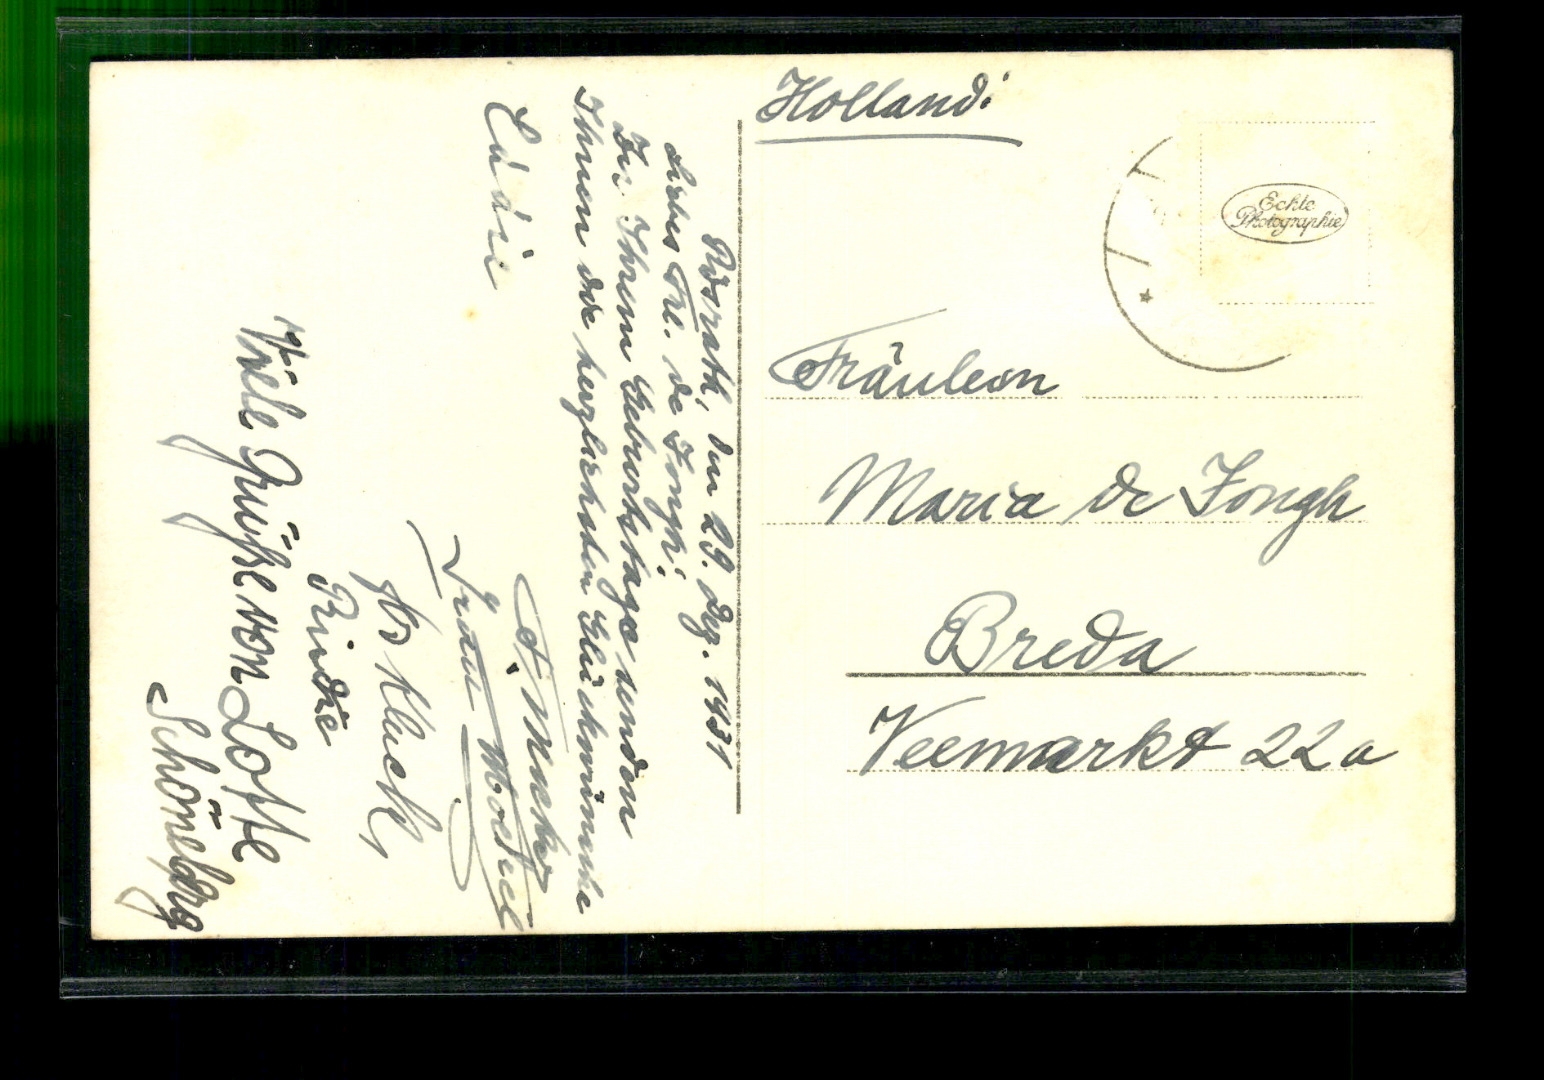 Holland:
Echte
Photographie
Fräulein
Maria de Jongh
Breda
Veemarkt 22a
Rösrath, den 29. Dez. 1931
Liebes Frl. de Jongh!
Zu Ihrem Geburtstage senden
Ihnen die herzlichsten Glückwünsche
Rudie
Viele Grüße von Lotte
Schöneberg